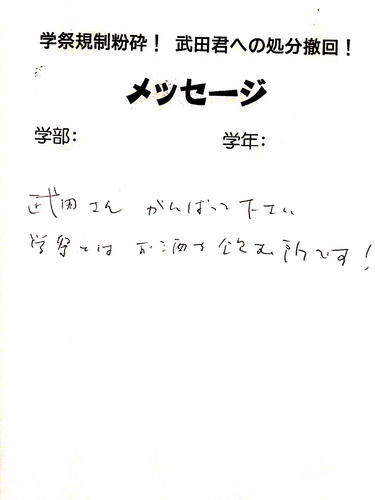 学祭規制粉砕！ 武田君への処分撤回！
メッセージ
学部： 学年：
武田さん がんばって下さい
学祭とは お酒を飲む所です！